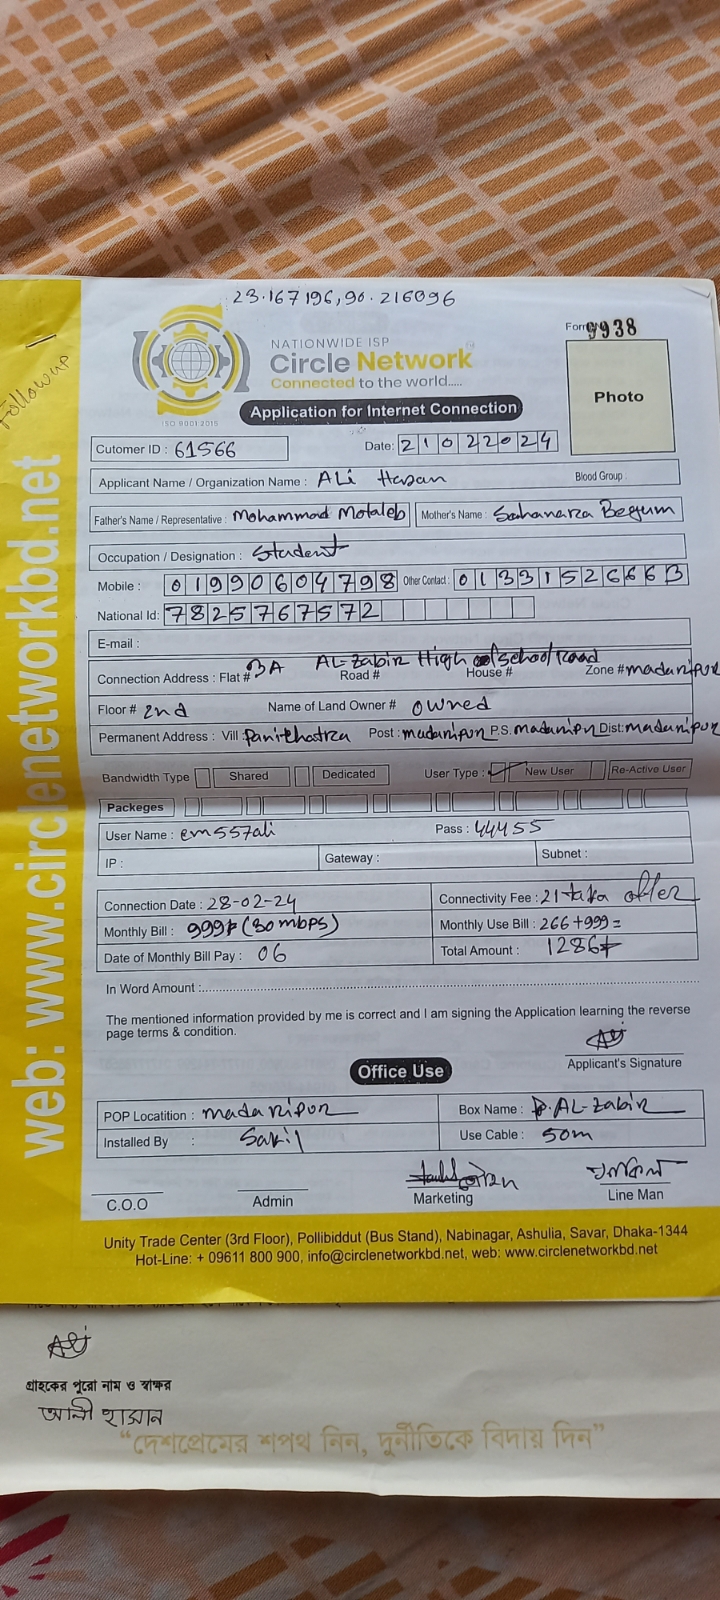 23.167196,90.216096
Followup
NATIONWIDE ISP
Circle Network
Connected to the world.....
ISO 9001 2015
Form 9938
Photo
Application for Internet Connection
Cutomer ID : 61566
Date: 21022024
Applicant Name / Organization Name : ALi Hasan Blood Group
Father's Name / Representative : Mohammad Motaleb Mother's Name : Sahanara Begum
Occupation / Designation : Student
Mobile : 01990604798 Other Contact : 01331526663
National Id: 7825767572
E-mail :
Connection Address : Flat # 3A AL-Zabir High school Road Road # House # Zone # madaripur
Floor # 2nd Name of Land Owner # owned
Permanent Address : Vill : Panichatra Post : madaripur P.S. madaripur Dist: madaripur
Bandwidth Type Shared Dedicated User Type : New User Re-Active User
Packeges
User Name : em557ali Pass : 44455
IP : Gateway : Subnet :
Connection Date : 28-02-24 Connectivity Fee : 21 taka offer
Monthly Bill : 999৳ (30mbps) Monthly Use Bill : 266+999=
Date of Monthly Bill Pay : 06 Total Amount : 1286৳
In Word Amount :
The mentioned information provided by me is correct and I am signing the Application learning the reverse
page terms & condition.
Ali
Applicant's Signature
Office Use
POP Locatition : madaripur Box Name : AL-zabir
Installed By : Sakil Use Cable : 50m
C.O.O Admin Marketing Line Man
Unity Trade Center (3rd Floor), Pollibiddut (Bus Stand), Nabinagar, Ashulia, Savar, Dhaka-1344
Hot-Line: + 09611 800 900, info@circlenetworkbd.net, web: www.circlenetworkbd.net
web: www.circlenetworkbd.net
Ali
গ্রাহকের পুরো নাম ও স্বাক্ষর
আলী হাসান
“দেশপ্রেমের শপথ নিন, দুর্নীতিকে বিদায় দিন”